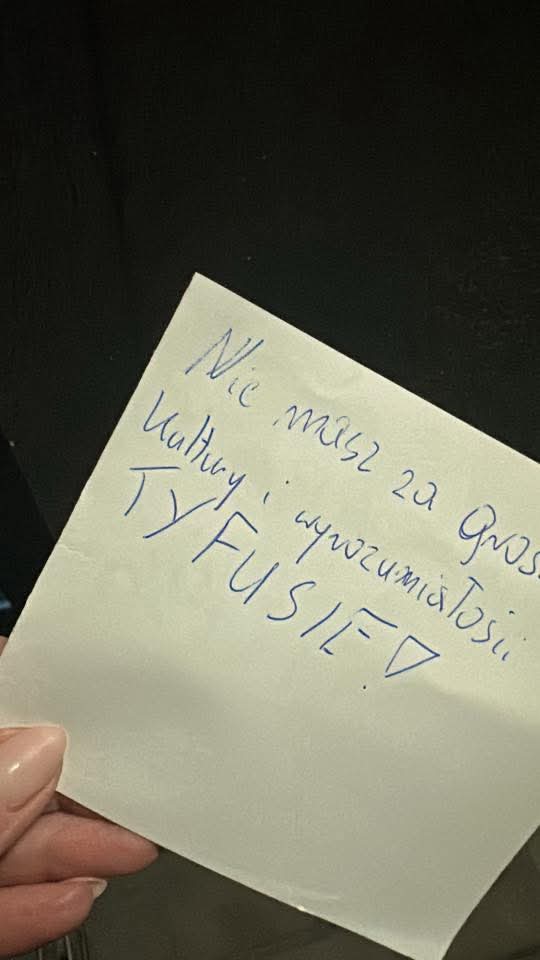 Nie masz za gros
kultury i wyrozumiałości
TYFUSIE!